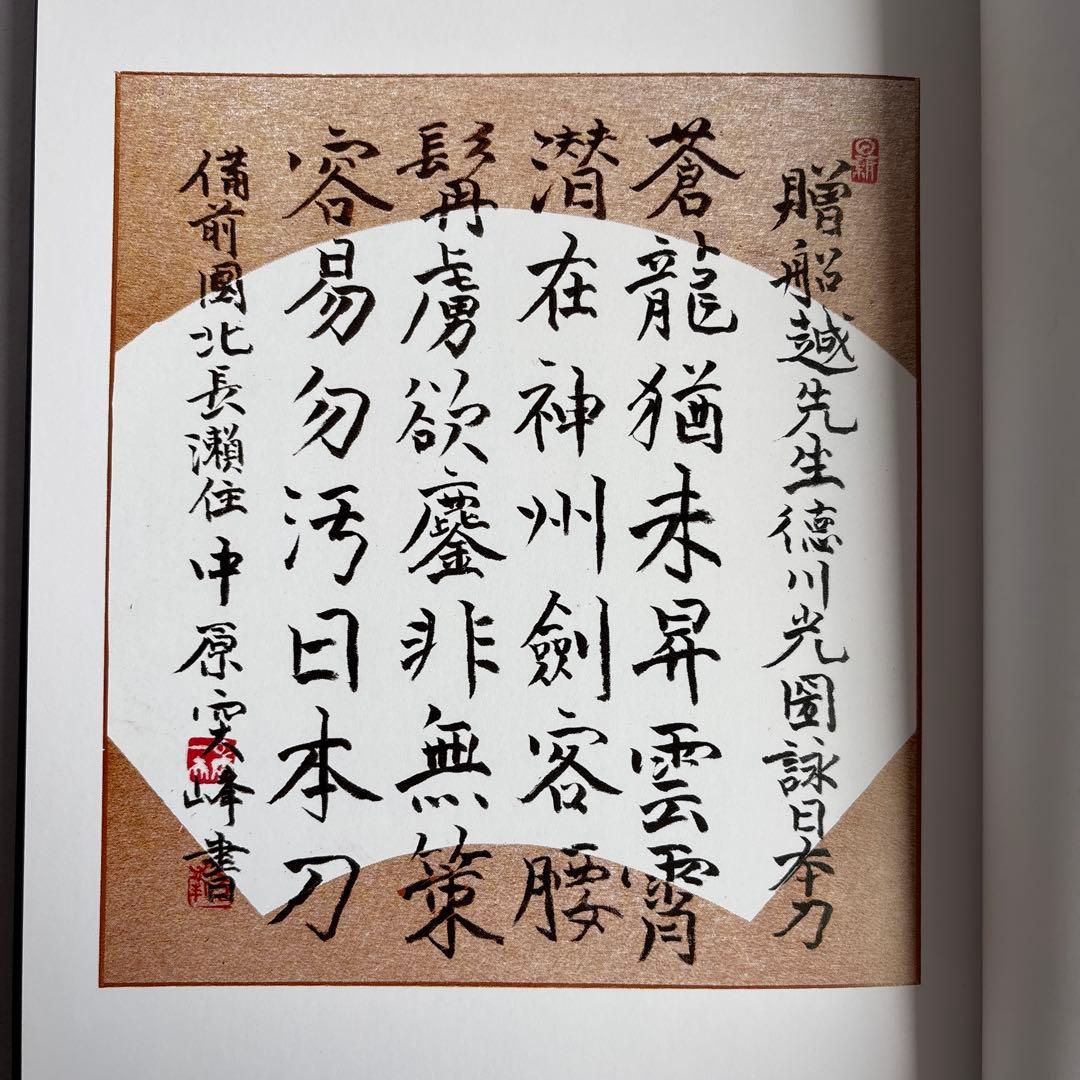 贈船越先生德川光圀詠日本刀
蒼龍猶未昇雲霄
潜在神州劍客腰
髯虜欲鏖非無策
容易勿汚日本刀
備前國北長瀬住中原寞峰書